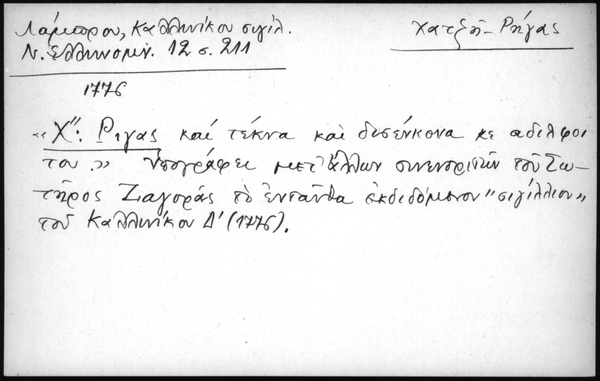 Λάμπρου, Καλλινίκου σιγίλ.
Ν. Ελληνομν. 12 σ. 211
Χατζῆ-Ρήγας
1776
«Χ": Ρηγας καί τέκνα καὶ δισένκονα κε αδελφοι
του.» Ὑπογράφει μετ' ἄλλων συνενοριτῶν τοῦ Σω-
τῆρος Ζαγορᾶς τὸ ἐνταῦθα ἐκδιδόμενον "σιγίλλιον"
τοῦ Καλλινίκου Δ' (1776).